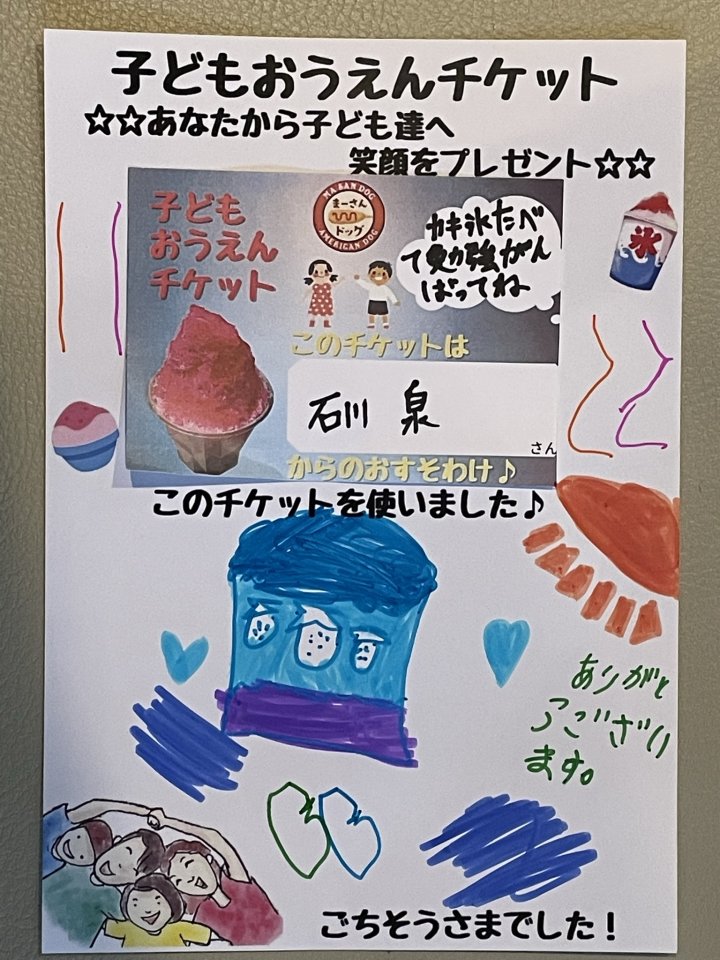 子どもおうえんチケット
☆☆あなたから子ども達へ
笑顔をプレゼント☆☆
子ども
おうえん
チケット
MA SAN DOG
まーさん
ドッグ
AMERICAN DOG
カキ氷たべ
て勉強がん
ばってね
氷
このチケットは
石川 泉
さん
からのおすそわけ♪
このチケットを使いました♪
ありがと
うござい
ます。
ごちそうさまでした!